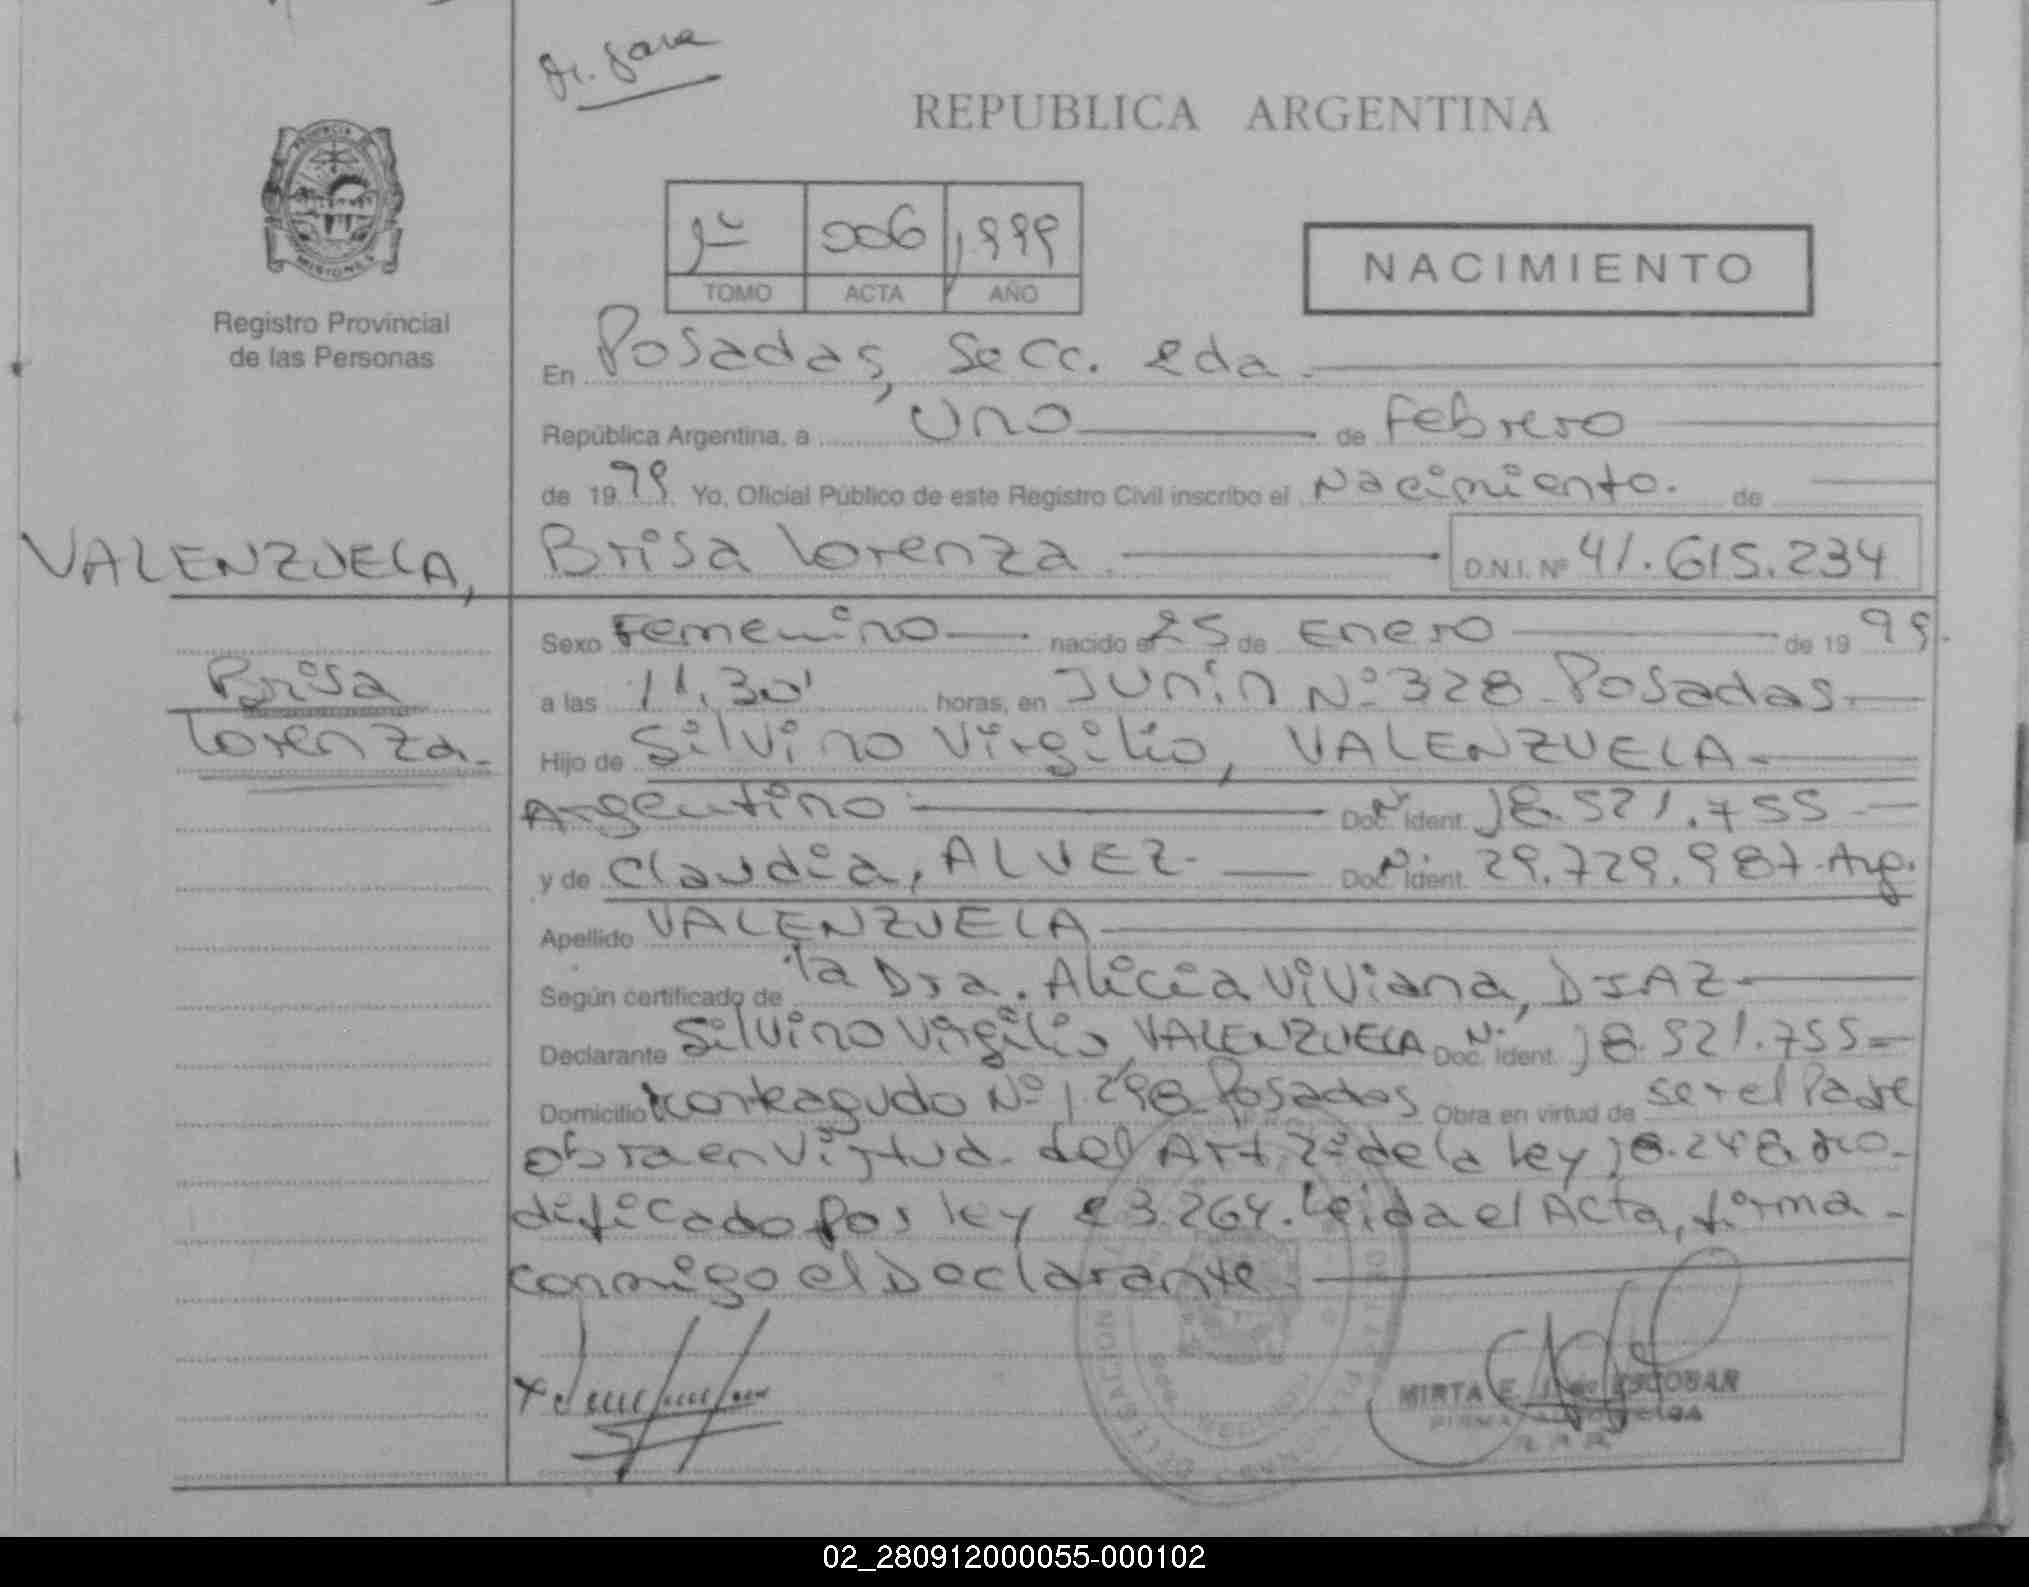 REPUBLICA ARGENTINA
PROVINCIA DE
MISIONES
Registro Provincial
de las Personas
1º 006 1999
TOMO ACTA AÑO
NACIMIENTO
En Posadas, Secc. 2da.
República Argentina, a Uno de Febrero
de 1999. Yo, Oficial Público de este Registro Civil inscribo el Nacimiento. de
VALENZUELA, Brisa Lorenza D.N.I. Nº 41.615.234
Brisa
Lorenza.
Sexo Femenino nacido el 25 de Enero de 1999.
a las 11,30' horas, en Junin Nº 328 - Posadas.
Hijo de Silvino Virgilio, VALENZUELA.
Argentino Doc. Ident. 18.521.755
y de Claudia, ALVEZ. Doc. Ident. 29.729.987. Arg.
Apellido VALENZUELA
Según certificado de la Dra. Alicia Viviana, DIAZ
Declarante Silvino Virgilio, VALENZUELA Doc. Ident. 18.521.755
Domicilio Monteagudo Nº 1.298 Posadas Obra en virtud de ser el Padre
obra en virtud del Art 2º de la Ley 18.248 mo-
dificado por ley 23.264. Leida el Acta, firma
conmigo el Declarante.
MIRTA E. ESCOBAR
02_280912000055-000102